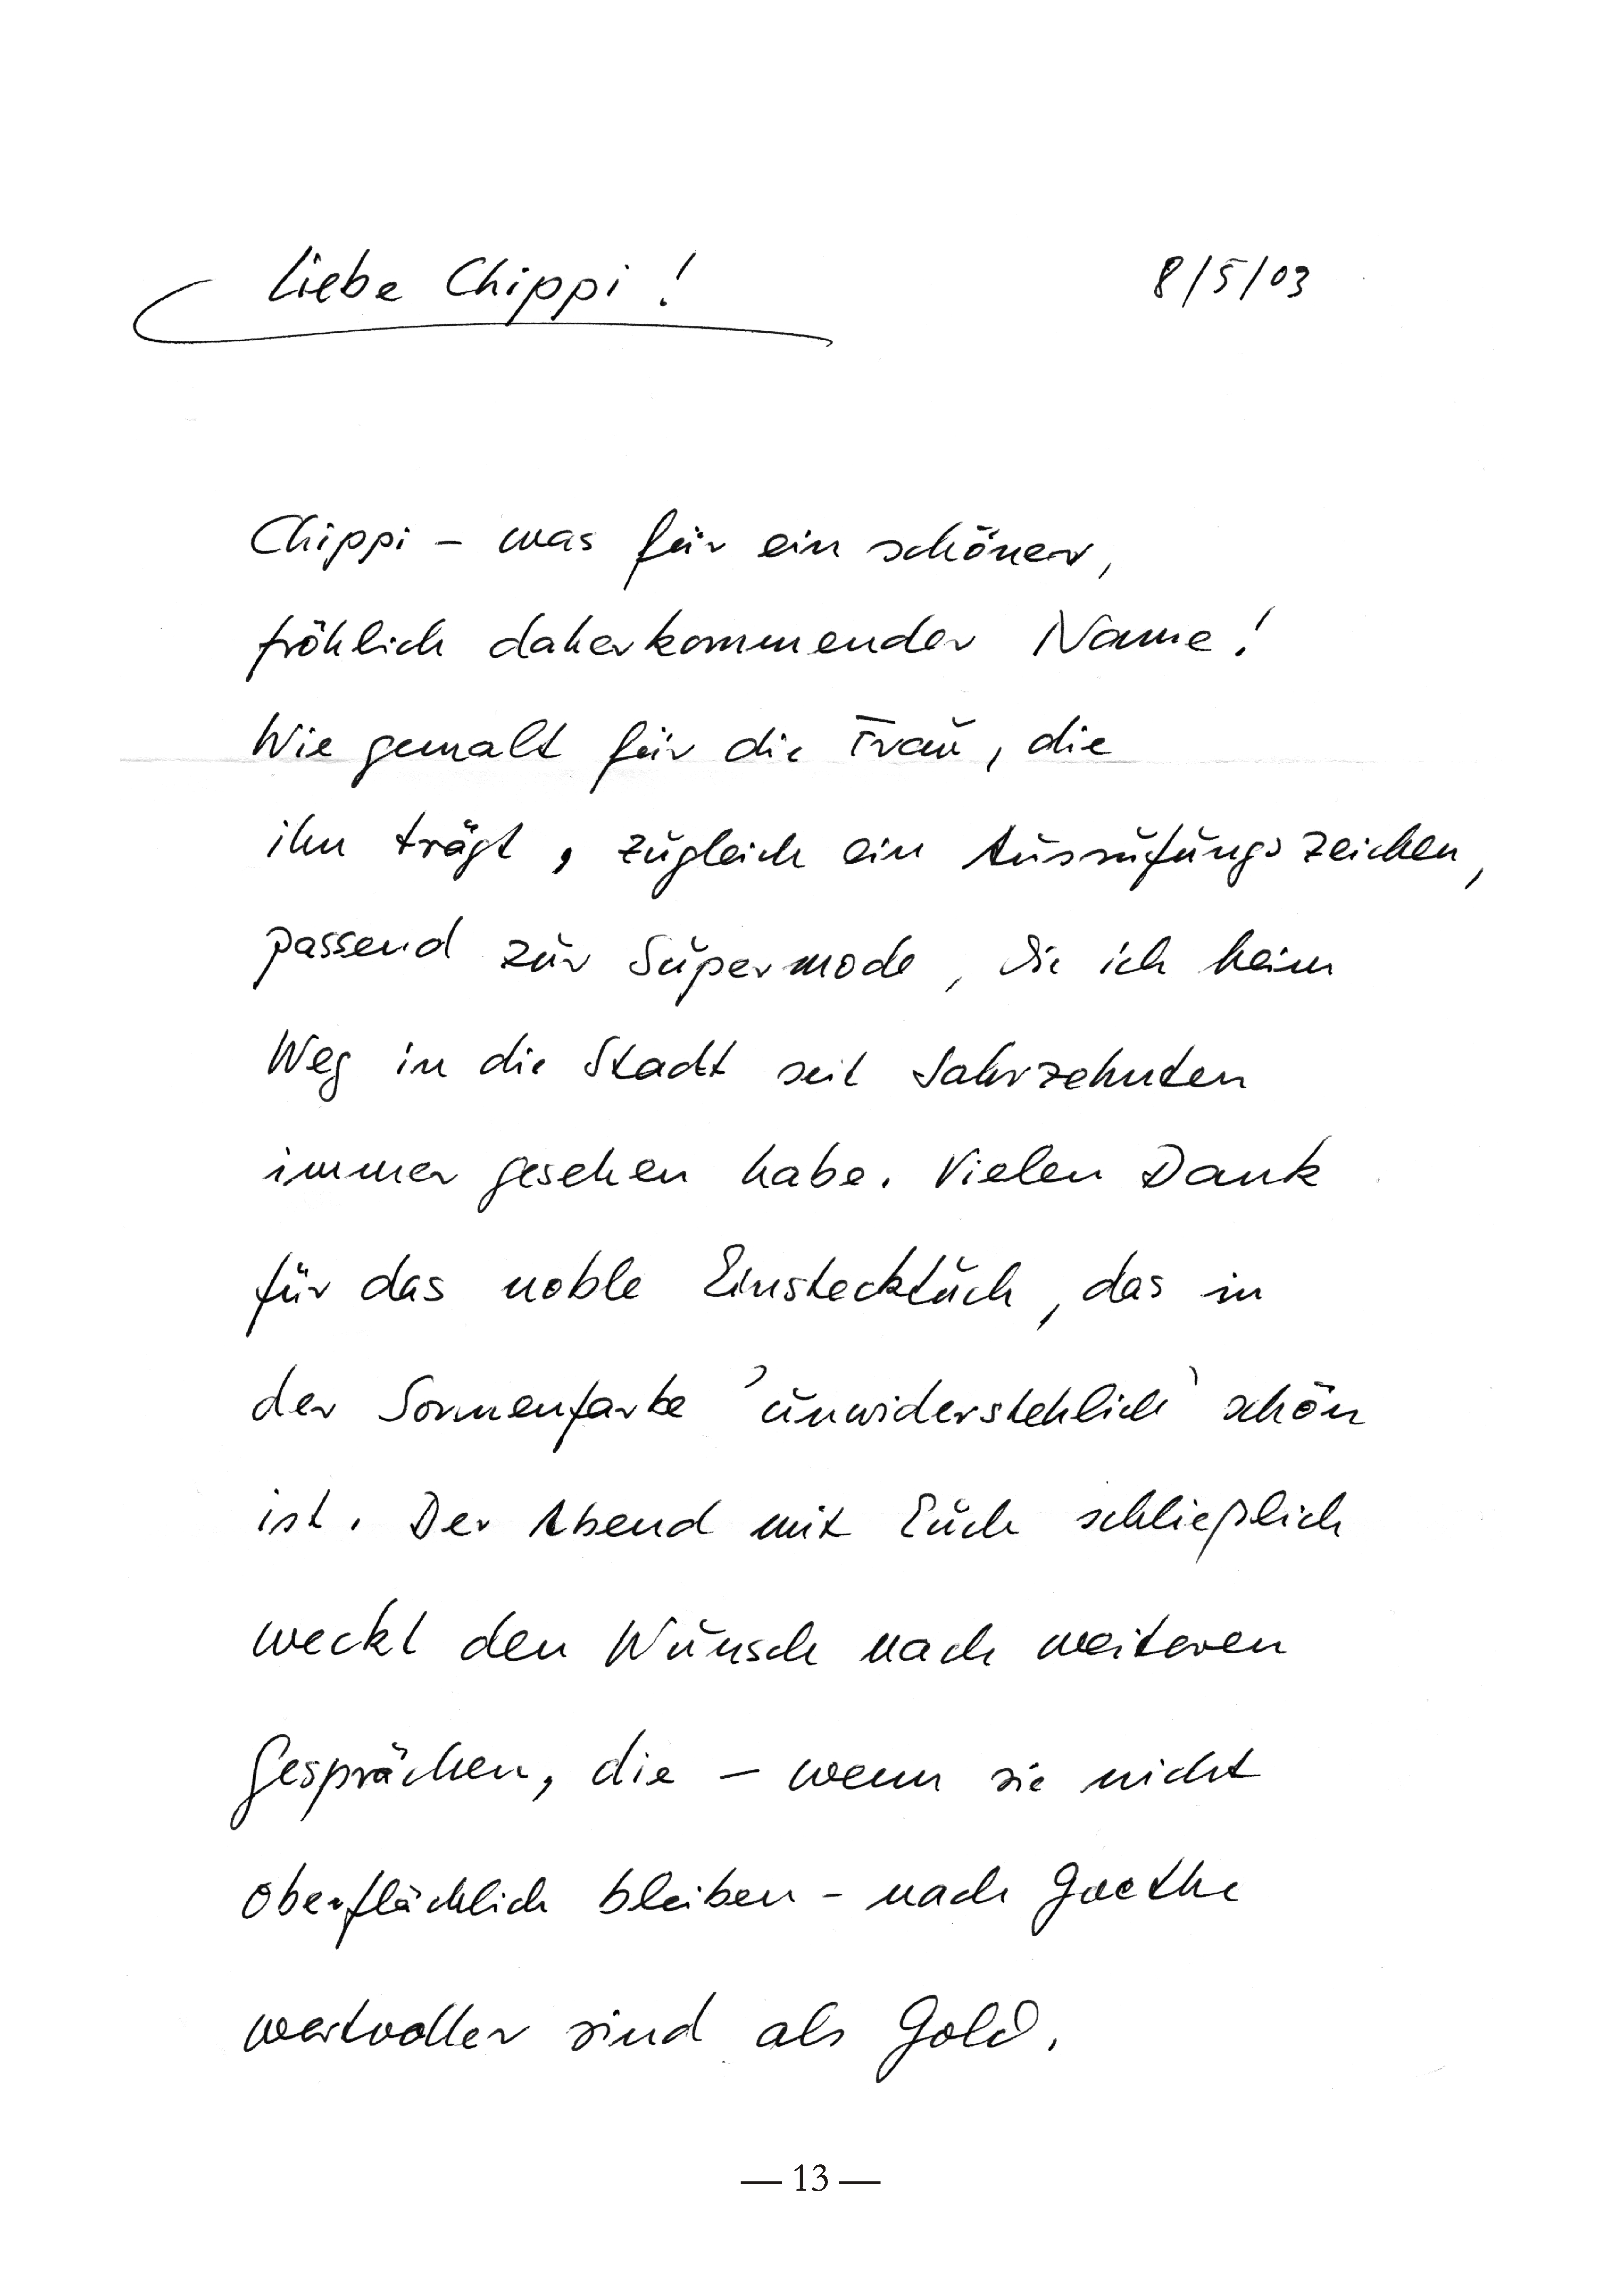 Liebe Chippi! 8/5/03
Chippi – was für ein schöner,
fröhlich daherkommender Name!
Wie gemalt für die Frau, die
ihn trägt, zugleich ein Ausrufungszeichen,
passend zur Supermode, die ich beim
Weg in die Stadt seit Jahrzehnten
immer gesehen habe. Vielen Dank
für das noble Einstecktuch, das in
der Sonnenfarbe 'unwiderstehlich' schön
ist. Der Abend mit Euch schließlich
weckt den Wunsch nach weiteren
Gesprächen, die – wenn sie nicht
oberflächlich bleiben – nach Goethe
wertvoller sind als Gold.
— 13 —